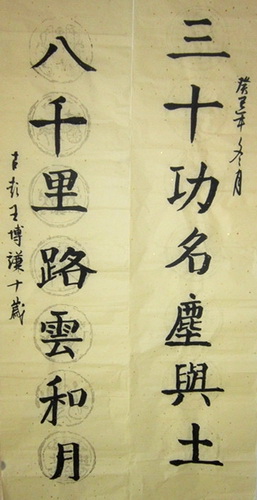 癸巳年冬月
三十功名塵與土
八千里路雲和月
古彭王博謙十歲